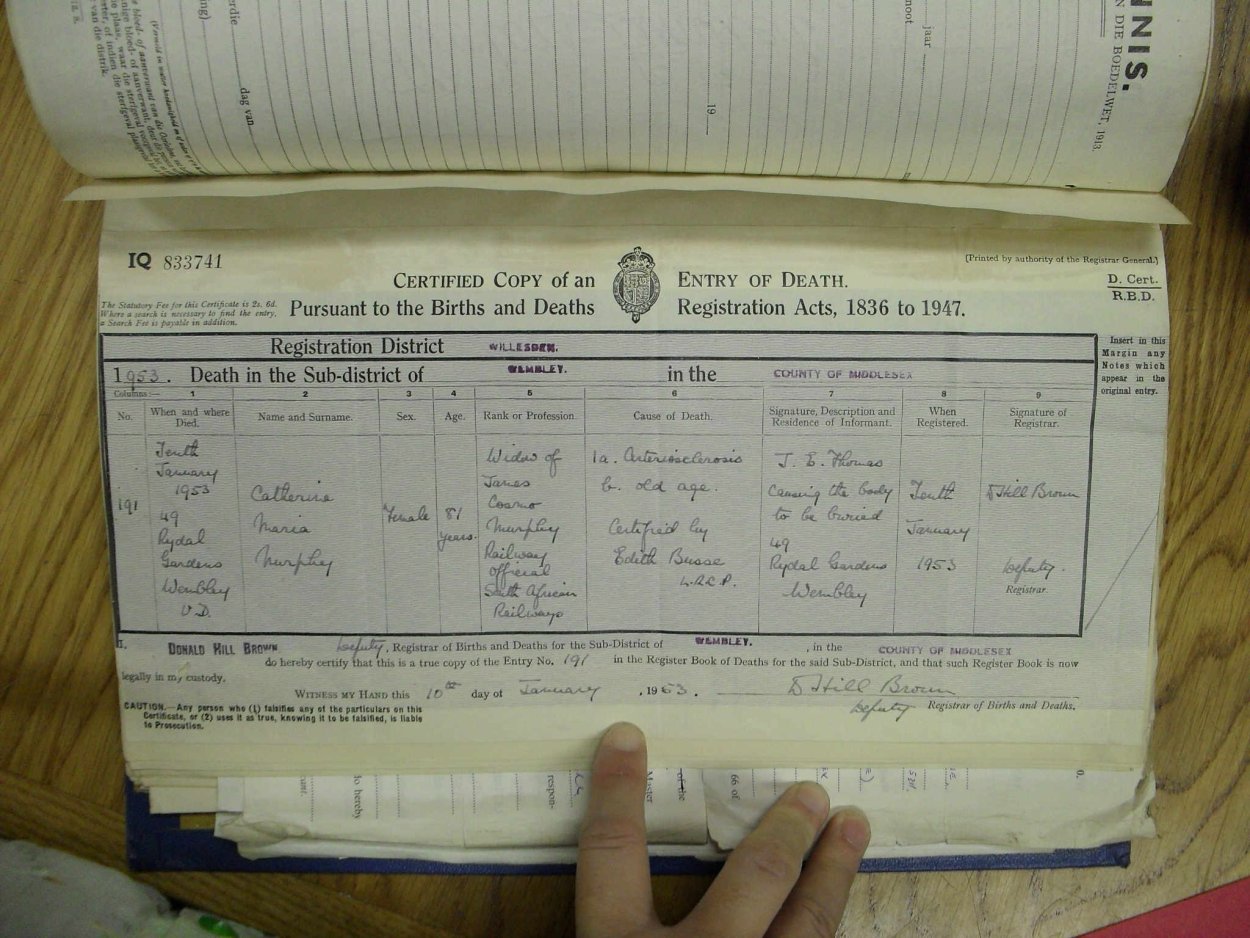 NNIS.
N DIE BOEDELWET, 1913.
noot
jaar
19
dag van
erdie
ing)
van die distrik.
IQ 833741
[Printed by authority of the Registrar General.]
CERTIFIED COPY of an ENTRY OF DEATH.
D. Cert.
R.B.D.
The Statutory Fee for this Certificate is 2s. 6d.
Where a search is necessary to find the entry,
a Search Fee is payable in addition.
Pursuant to the Births and Deaths Registration Acts, 1836 to 1947.
Registration District WILLESDEN.
Insert in this
Margin any
Notes which
appear in the
original entry.
1953. Death in the Sub-district of WEMBLEY. in the COUNTY OF MIDDLESEX
Columns:— 1 2 3 4 5 6 7 8 9
No.
When and where
Died.
Name and Surname.
Sex.
Age.
Rank or Profession.
Cause of Death.
Signature, Description and
Residence of Informant.
When
Registered.
Signature of
Registrar.
191
Tenth
January
1953
49
Rydal
Gardens
Wembley
U.D.
Catherine
Maria
Murphy
Female
81
years.
Widow of
James
Cosmo
Murphy
Railway
official
South African
Railways
1a. Arteriosclerosis
b. old age.
Certified by
Edith Busse
L.R.C.P.
J. E. Thomas
Causing the body
to be buried
49
Rydal Gardens
Wembley
Tenth
January
1953
D Hill Brown
Deputy.
Registrar.
I, DONALD HILL BROWN Deputy, Registrar of Births and Deaths for the Sub-District of WEMBLEY. , in the COUNTY OF MIDDLESEX
do hereby certify that this is a true copy of the Entry No. 191 in the Register Book of Deaths for the said Sub-District, and that such Register Book is now
legally in my custody.
WITNESS MY HAND this 10th day of January , 1953. D Hill Brown
Deputy Registrar of Births and Deaths.
CAUTION.—Any person who (1) falsifies any of the particulars on this
Certificate, or (2) uses it as true, knowing it to be falsified, is liable
to Prosecution.
lo hereby
respon-
Master
of the
66 of